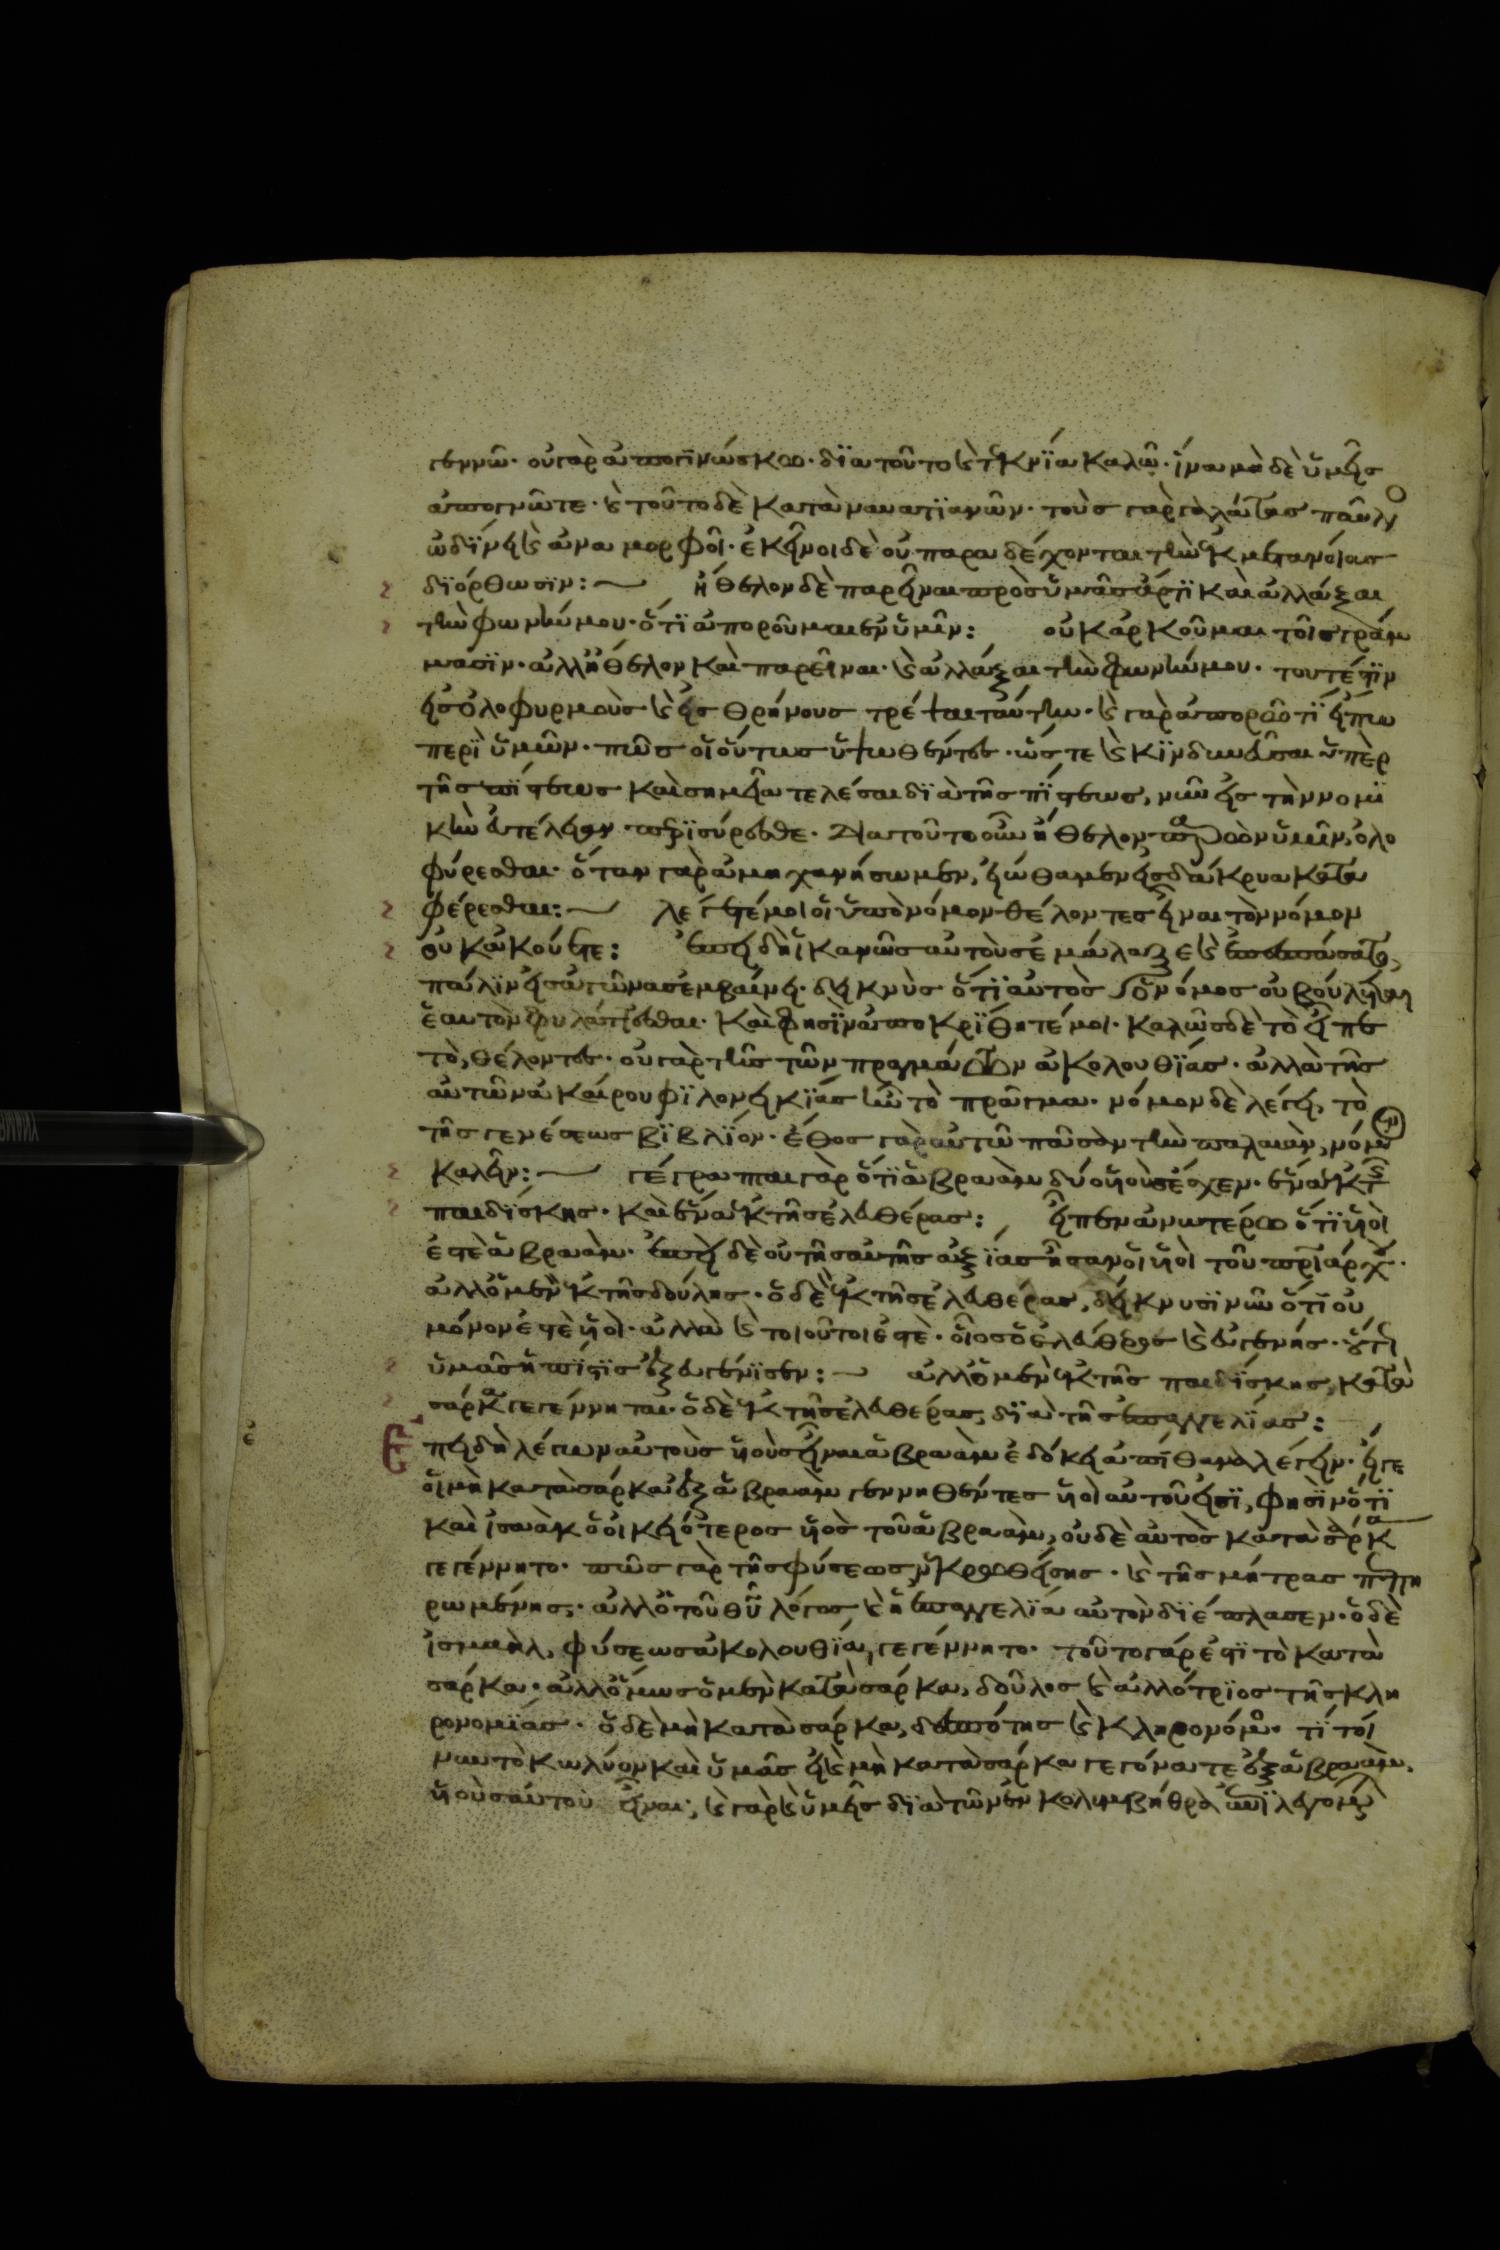 γεννῶ· οὐ γὰρ ἀπογινώσκω· διὰ τοῦτο καὶ τεκνία καλῶ· ἵνα μὴ δὲ ὑμεῖς
ἀπογνῶτε· καὶ τοῦτο δὲ κατὰ ναυατιανῶν· τοὺς γὰρ γαλάτας παῦλος
ὠδίνει καὶ ἀναμορφοῖ· ἐκεῖνοι δὲ οὐ παραδέχονται τὴν ἐκ μετανοίας
διόρθωσιν: ἤθελον δὲ παρεῖναι πρὸς ὑμᾶς ἄρτι καὶ ἀλλάξαι
τὴν φωνήν μου· ὅτι ἀποροῦμαι ἐν ὑμῖν: οὐκ ἀρκοῦμαι τοῖς γράμ
μασιν· ἀλλ' ἤθελον καὶ παρεῖναι· καὶ ἀλλάξαι τὴν φωνήν μου· τουτέστιν
εἰς ὀλοφυρμοὺς καὶ εἰς θρήνους τρέψαι ταύτην· καὶ γὰρ ἀπορῶ τί εἴπω
περὶ ὑμῶν· πῶς οἱ οὕτως ὑψωθέντες· ὥστε καὶ κινδυνεῦσαι ὑπὲρ
τῆς πίστεως καὶ σημεῖα τελέσαι διὰ τῆς πίστεως, νῦν εἰς τὴν νομι
κὴν εὐτέλειαν περισύρεσθε· διὰ τοῦτο οὖν ἤθελον παρὼν ὑμῖν, ὀλο
φύρεσθαι· ὅταν γὰρ ἀμηχανήσωμεν, εἰώθαμεν εἰς δάκρυα κατα
φέρεσθαι: λέγετέ μοι οἱ ὑπὸ νόμον θέλοντες εἶναι τὸν νόμον
οὐκ ἀκούετε: ἐπειδὴ ἱκανῶς αὐτοὺς ἐμάλαξε καὶ ἐπεσπάσατο,
πάλιν εἰς ἀγῶνας ἐμβαίνει· δεικνὺς ὅτι αὐτὸς ὁ νόμος οὐ βούλεται
ἑαυτὸν φυλάττεσθαι· καί φησιν ἀποκρίθητέ μοι· καλῶς δὲ τὸ εἶπε
τό, θέλοντες· οὐ γὰρ τῆς τῶν πραγμάτων ἀκολουθίας· ἀλλὰ τῆς
αὐτῶν ἀκαίρου φιλονεικίας ἦν τὸ πρᾶγμα· νόμον δὲ λέγει, τὸ
τῆς γενέσεως βιβλίον· ἔθος γὰρ αὐτῷ πᾶσαν τὴν παλαιάν, νόμον
καλεῖν: γέγραπται γὰρ ὅτι ἀβραὰμ δύο υἱοὺς ἔσχεν· ἕνα ἐκ τῆς
παιδίσκης· καὶ ἕνα ἐκ τῆς ἐλευθέρας: εἶπεν ἀνωτέρω ὅτι υἱοί
ἐστὲ ἀβραάμ· ἐπεὶ δὲ οὐ τῆς αὐτῆς ἀξίας ἦσαν οἱ υἱοὶ τοῦ πριάρχου·
ἀλλ' ὁ μὲν ἐκ τῆς δούλης· ὁ δὲ ἐκ τῆς ἐλευθέρας, δείκνυσι νῦν ὅτι οὐ
μόνον ἐστὲ υἱοί· ἀλλὰ καὶ τοιοῦτοι ἐστὲ· οἷος ὁ ἐλεύθερος καὶ εὐγενής· οὕτως
ὑμᾶς ἡ πίστις ἐξευγένισεν: ἀλλ' ὁ μὲν ἐκ τῆς παιδίσκης, κατὰ
σάρκα γεγέννηται· ὁ δὲ ἐκ τῆς ἐλευθέρας, διὰ τῆς ἐπαγγελίας:
Ἐπειδὴ λέγων αὐτοὺς υἱοὺς εἶναι ἀβραὰμ ἐδόκει ἀπίθανα λέγειν· εἴγε
οἱ μὴ κατὰ σάρκα ἐξ ἀβραὰμ γεννηθέντες υἱοὶ αὐτοῦ εἰσι, φησὶν ὅτι
καὶ ἰσαὰκ ὁ οἰκειότερος υἱὸς τοῦ ἀβραάμ, οὐδὲ αὐτὸς κατὰ σάρκα
γεγέννητο· πῶς γὰρ τῆς φύσεως νεκρωθείσης· καὶ τῆς μήτρας πεπη
ρωμένης· ἀλλ' ὁ τοῦ θυ λόγος καὶ ἡ ἐπαγγελία αὐτὸν διέπλασεν· ὁ δὲ
ἰσμαήλ, φύσεως ἀκολουθία, γεγέννητο· τοῦτο γάρ ἐστι τὸ κατὰ
σάρκα· ἀλλ' ὅμως ὁ μὲν κατὰ σάρκα, δοῦλος καὶ ἀλλότριος τῆς κλη
ρονομίας· ὁ δὲ μὴ κατὰ σάρκα, δεσπότης καὶ κληρονόμος· τί τοί
νυν τὸ κωλύον καὶ ὑμᾶς εἰ καὶ μὴ κατὰ σάρκα γεγόνατε ἐξ ἀβραάμ,
υἱοὺς αὐτοῦ εἶναι; καὶ γὰρ καὶ ὑμεῖς διὰ τῶν ἐν κολυμβήθρα ἐπιλεγομένων